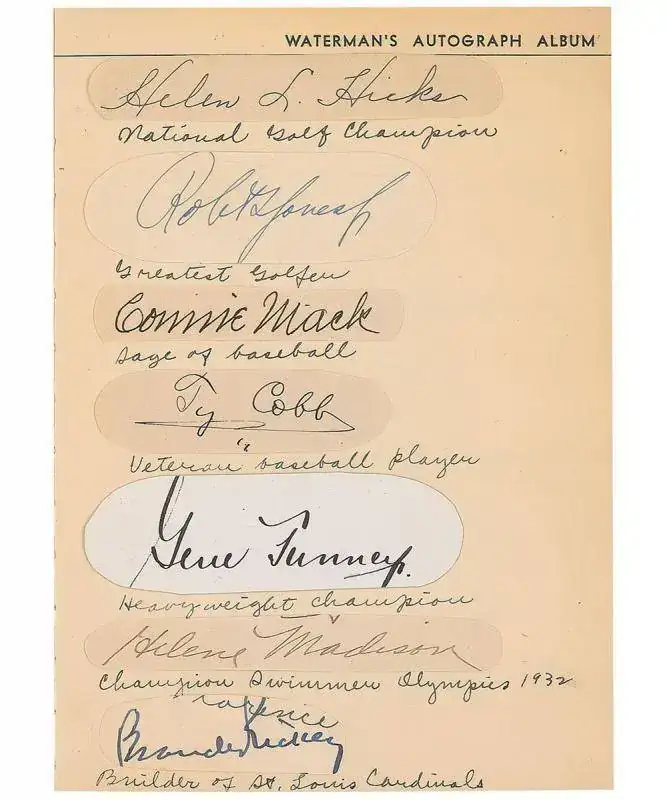 WATERMAN'S AUTOGRAPH ALBUM
Helen L. Hicks
National Golf Champion
Robt T Jones Jr
Greatest Golfer
Connie Mack
Sage of baseball
Ty Cobb
Veteran baseball player
Gene Tunney.
Heavyweight champion
Helene Madison
Champion Swimmer Olympics 1932
Branch Rickey
Builder of St. Louis Cardinals